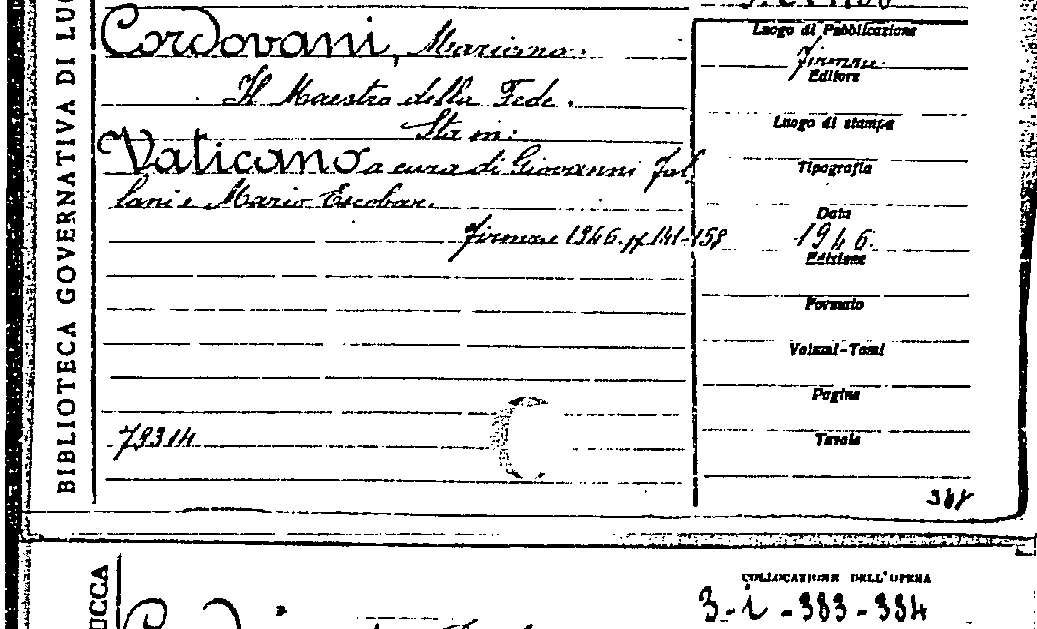 BIBLIOTECA GOVERNATIVA DI LUC
Cordovani, Mariano.
Il Maestro della Fede.
Sta in:
Vaticano a cura di Giovanni Fal
lani e Mario Escobar.
Firenze 1946. pp 141-158
79314
Luogo di Pubblicazione
Firenze
Editore
Luogo di stampa
Tipografia
Data
1946.
Edizione
Formato
Volumi-Tomi
Pagine
Tavole
UCCA
COLLOCAZIONE DELL'OPERA
3-i-383-384